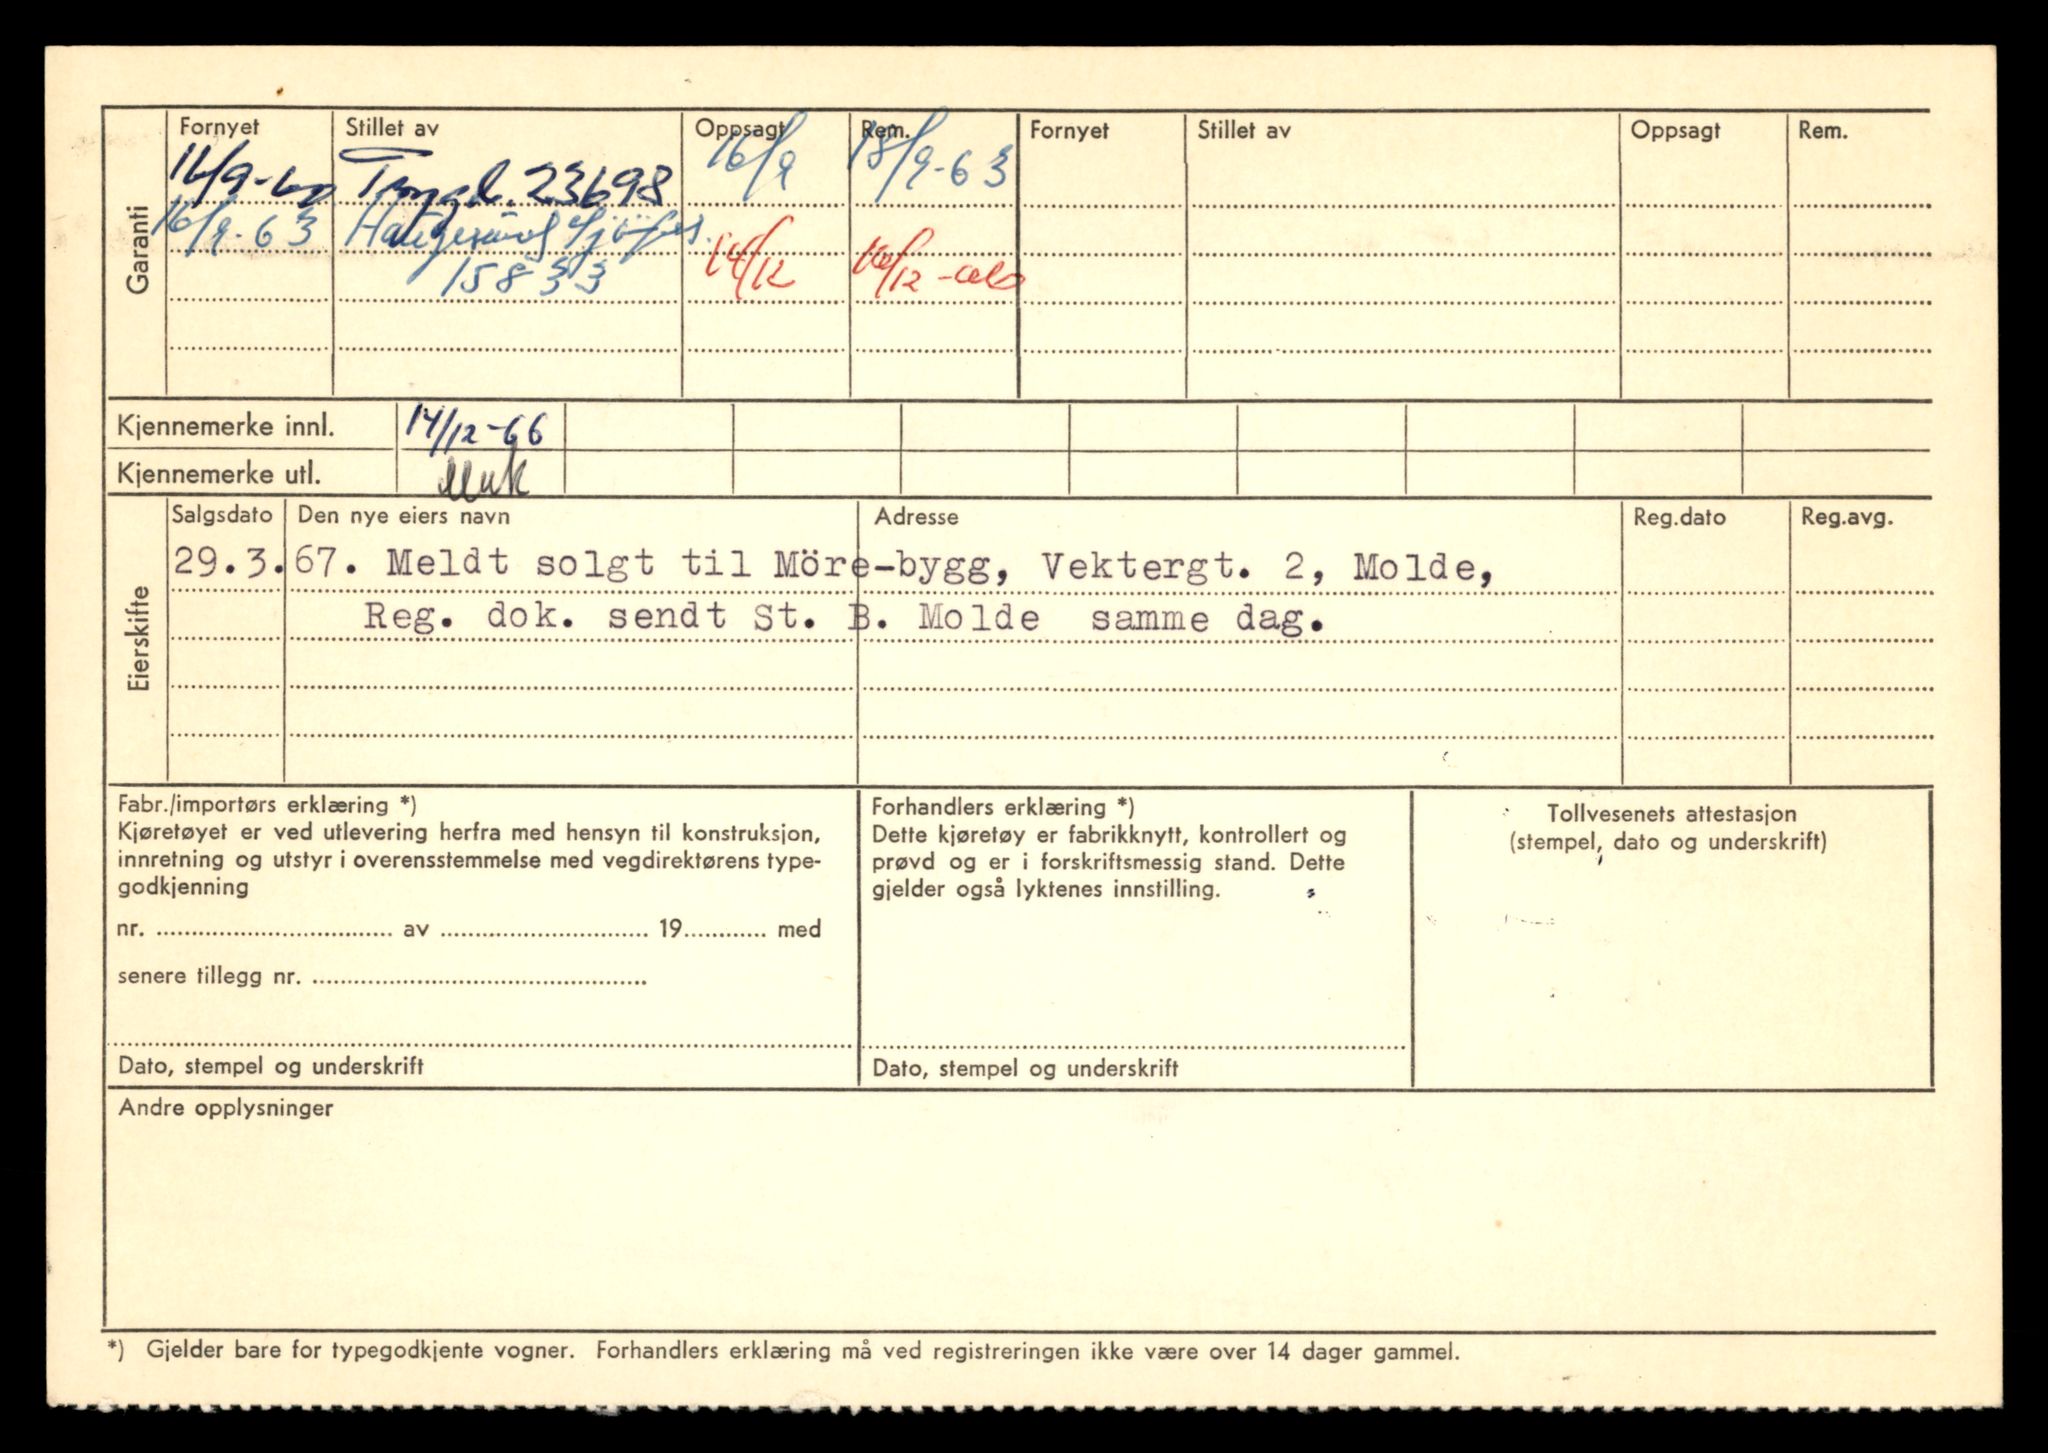 Garanti
Fornyet Stillet av Oppsagt Rem. Fornyet Stillet av Oppsagt Rem.
16/9-60 Trygd. 23698 16/9 18/9-63
16/9-63 Haugesund Sjöfors.
15833 14/12 16/12-66
Kjennemerke innl. 14/12-66
Kjennemerke utl.
Eierskifte
Salgsdato Den nye eiers navn Adresse Reg.dato Reg.avg.
29.3.67. Meldt solgt til Möre-bygg, Vektergt. 2, Molde,
Reg. dok. sendt St. B. Molde samme dag.
Fabr./importørs erklæring *)
Kjøretøyet er ved utlevering herfra med hensyn til konstruksjon,
innretning og utstyr i overensstemmelse med vegdirektørens type-
godkjenning
nr. .................. av .................. 19............ med
senere tillegg nr. ..................
Dato, stempel og underskrift
Forhandlers erklæring *)
Dette kjøretøy er fabrikknytt, kontrollert og
prøvd og er i forskriftsmessig stand. Dette
gjelder også lyktenes innstilling.
Dato, stempel og underskrift
Tollvesenets attestasjon
(stempel, dato og underskrift)
Andre opplysninger
*) Gjelder bare for typegodkjente vogner. Forhandlers erklæring må ved registreringen ikke være over 14 dager gammel.